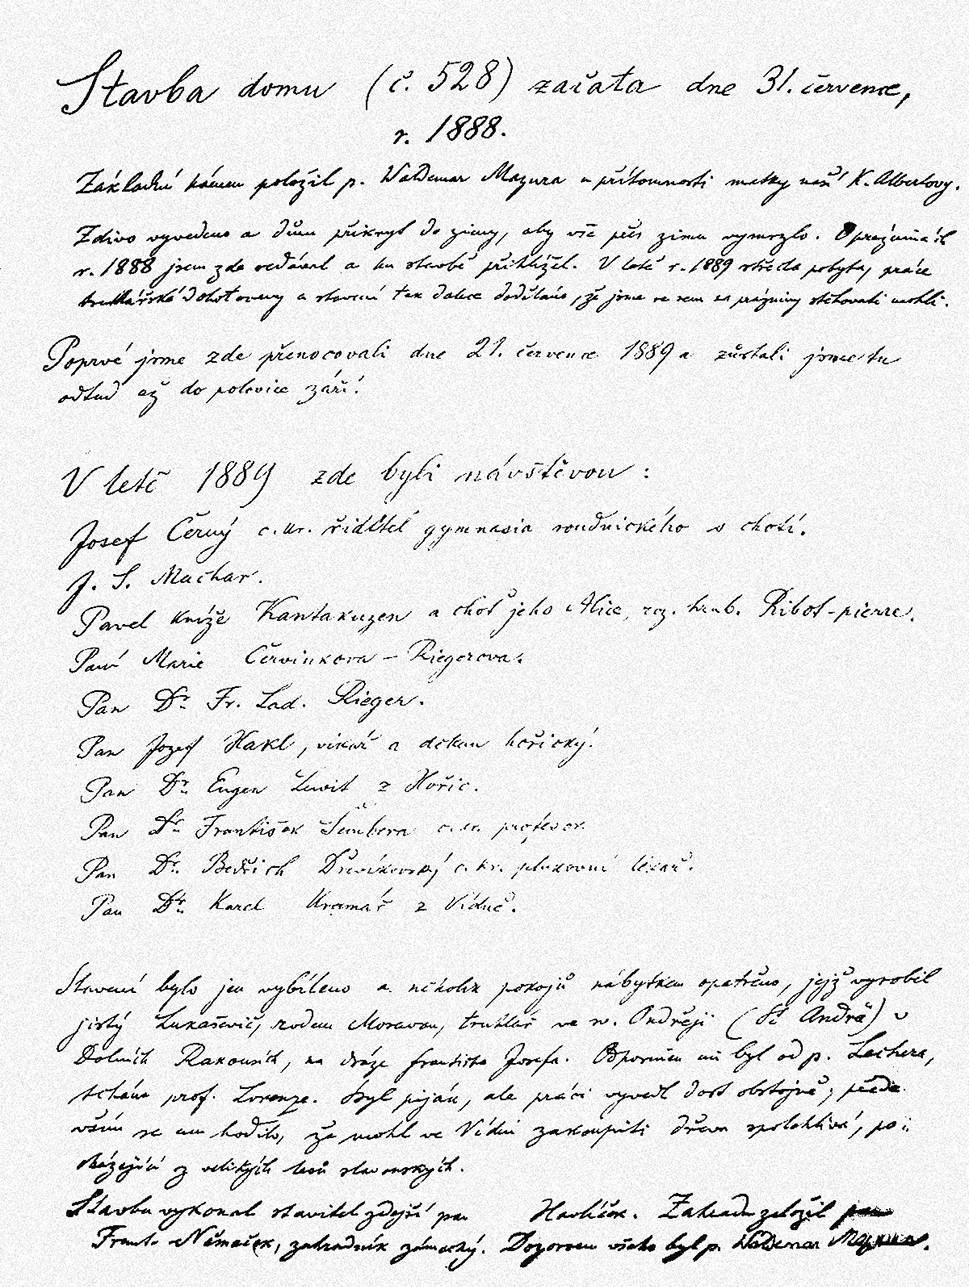 Stavba domu (č. 528) začata dne 31. července,
r. 1888.
Základní kámen položil p. Waldemar Mazura u přítomnosti matky naší K. Albertovy.
Zdivo vyvedeno a dům přikryt do zimy, aby vše přes zimu vymrzlo. O prázdninách
r. 1888 jsem zde sedával a ku stavbě přihlížel. V letě r. 1889 střecha pobyta, práce
truhlářské dohotoveny a stavení tak dalece doděláno, že jsme se sem na prázdniny stěhovati mohli.
Poprvé jsme zde přenocovali dne 21. července 1889 a zůstali jsme tu
odtud až do polovice září.
V letě 1889 zde byli návštěvou :
Josef Černý c. kr. ředitel gymnasia roudnického s chotí.
J. S. Machar.
Pavel kníže Kantakuzen a choť jeho Alice, roz. hrab. Ribot-pierre.
Paní Marie Červinkova - Riegerova.
Pan Dr. Fr. Lad. Rieger.
Pan Jozef Hakl, vikář a děkan hořický.
Pan Dr. Eugen Lewit z Hořic.
Pan Dr. František Šembera c. kr. profesor.
Pan Dr. Bedřich Dřevíkovský c. kr. plukovní lékař.
Pan Dr. Karel Kramář z Vídně.
Stavení bylo jen vybíleno a několik pokojů nábytkem opatřeno, jejž vyrobil
jistý Lukaševič, rodem Moravan, truhlář ve sv. Ondřeji (St Andrä) v
Dolních Rakousích, na dráze Františka Josefa. Odporučen mi byl od p. Lachera,
tchána prof. Lorenze. Byl piják, ale práci vyvedl dost obstojně; přede
vším se mu hodilo, že mohl ve Vídni zakoupiti dřeva spolehlivá,
z velikých lesů slavonských.
Stavbu vykonal stavitel zdejší pan Havlíček. Zahradu založil pan
Frant. Němeček, zahradník zámecký. Dozorcem všeho byl p. Waldemar Mazura.